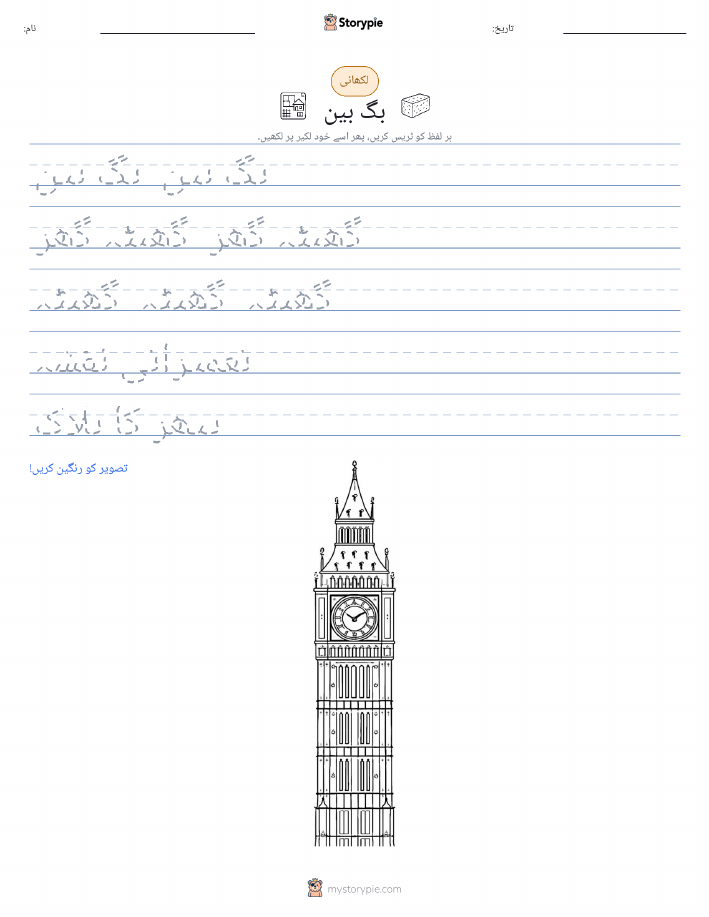 نام:
Storypie
تاریخ:
لکھائی
بگ بین
ہر لفظ کو ٹریس کریں، پھر اسے خود لکیر پر لکھیں۔
بگ بین بگ بین
گھنٹہ گھر گھنٹہ گھر
گھنٹہ گھنٹہ گھنٹہ
تعمیراتی نقشہ
پتھر کا بلاک
تصویر کو رنگین کریں!
mystorypie.com